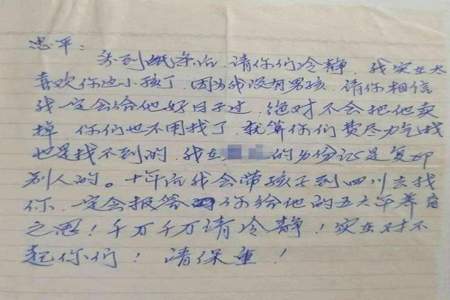 忠平：
看到纸条后，请你们冷静，我实在太
喜欢你这小孩了，因为我没有男孩，请你相信
我一定会给他好日子过，绝对不会把他卖
掉，你们也不用找了，就算你们费尽力气找
也是找不到的，我在的身份证是复印
别人的。十年后我会带孩子到四川去找
你，一定会报答你给他的五六年养育
之恩！千万千万请冷静！实在对不
起你们！请保重！